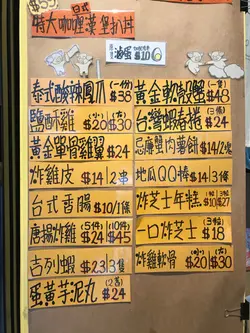 日式
特大咖喱漢堡扒丼
滷蛋 $10
泰式酸辣鳳爪(一份)$38
鹽酥雞(小)$20(大)$30
黃金單骨雞翼$24
炸雞皮$14/2串
台式香腸$10/1條
唐揚炸雞(5件)$24(10件)$45
吉列小蝦$23/3隻
蛋黃芋泥丸$24
黃金軟殼蟹(一份)$48
台灣蝦卷(3條)$24
忌廉蟹肉薯餅$14/2
地瓜QQ棒$14/3條
炸芝士年糕$10/$27
一口炸芝士(3粒)$18
炸雞軟骨(小)$20(大)$30